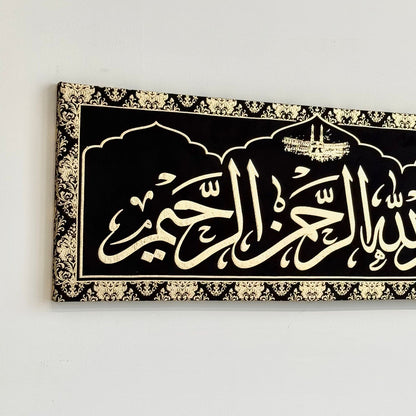 الله الرَّحْمٰنِ الرَّحِيمِ